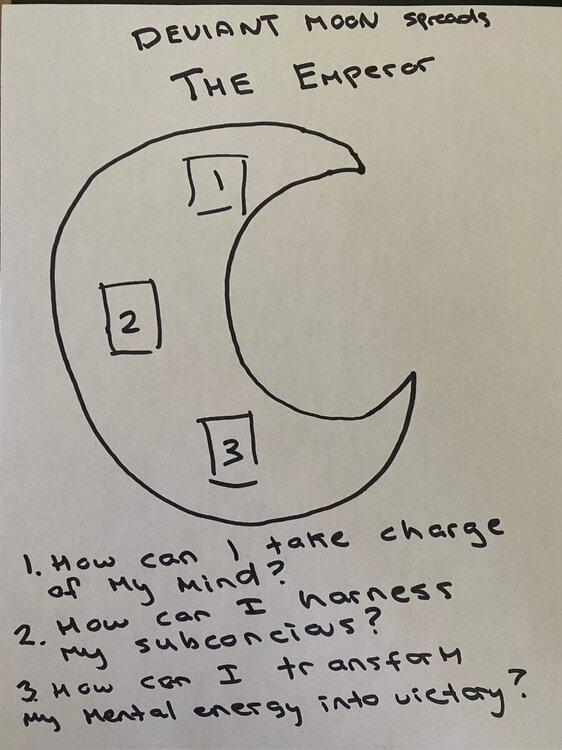 DEVIANT MOON spreads
THE Emperor
1
2
3
1. How can I take charge
of My Mind?
2. How can I harness
my subconcious?
3. How can I transform
My Mental energy into victory?